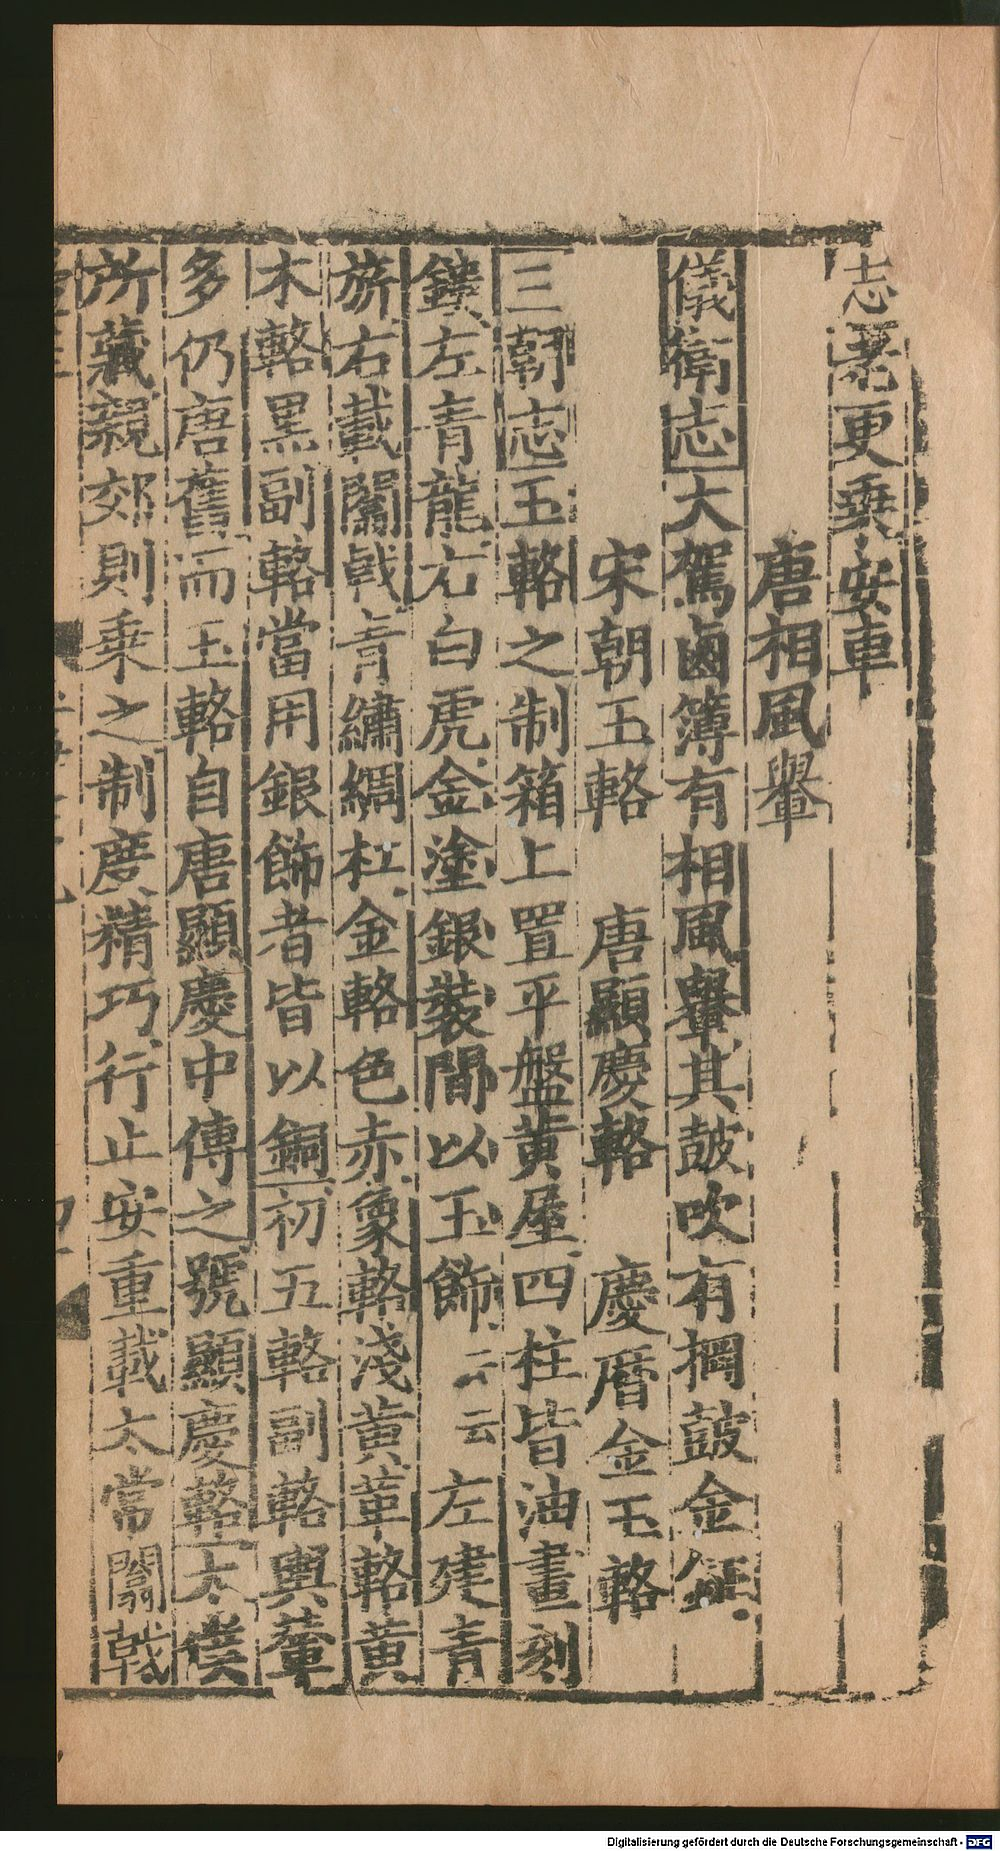 志署更乗安車
唐相風轝
儀衛志大駕鹵簿有相風轝其鼓吹有掆鼓金鉦
宋朝玉輅 唐顯慶輅 慶曆金玉輅
三朝志玉輅之制箱上置平盤黄屋四柱皆油畫刻
鏤左青龍右白虎金塗銀裝間以玉飾云云左建青
旂右載闟戟青繡綢杠金輅色赤象輅淺黄革輅黄
木輅黒副輅當用銀飾者皆以銅初五輅副輅輿輦
多仍唐舊而玉輅自唐顯慶中傳之號顯慶輅太僕
所藏親郊則乗之制度精巧行止安重載太常闟戟
Digitalisierung gefördert durch die Deutsche Forschungsgemeinschaft - DFG